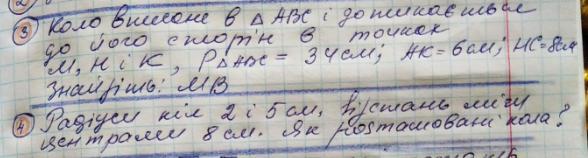 ③ Коло вписане в △ ABC і дотикається
до його сторін в точках
M, H і K, P△ABC = 34см; AK=6см; HC=8см
Знайдіть: MB
④ Радіуси кіл 2 і 5 см, відстань між
центрами 8 см. Як розташовані кола?